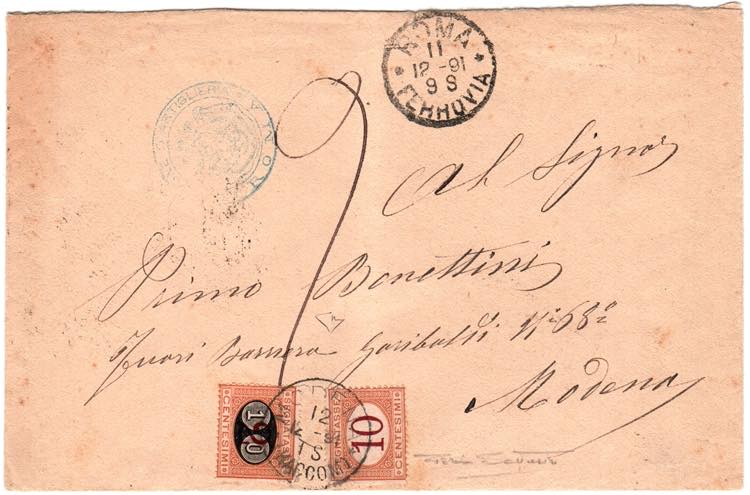 ROMA
11
12 - 91
9 S
FERROVIA
ARTIGLIERIA
ROMA
Al Signor
Primo Bonettini
fuori Barriera Garibaldi N° 68°
Modena
CENTESIMI
10
SEGNATASSE
10
CENTESIMI
12
12 - 91
1 S